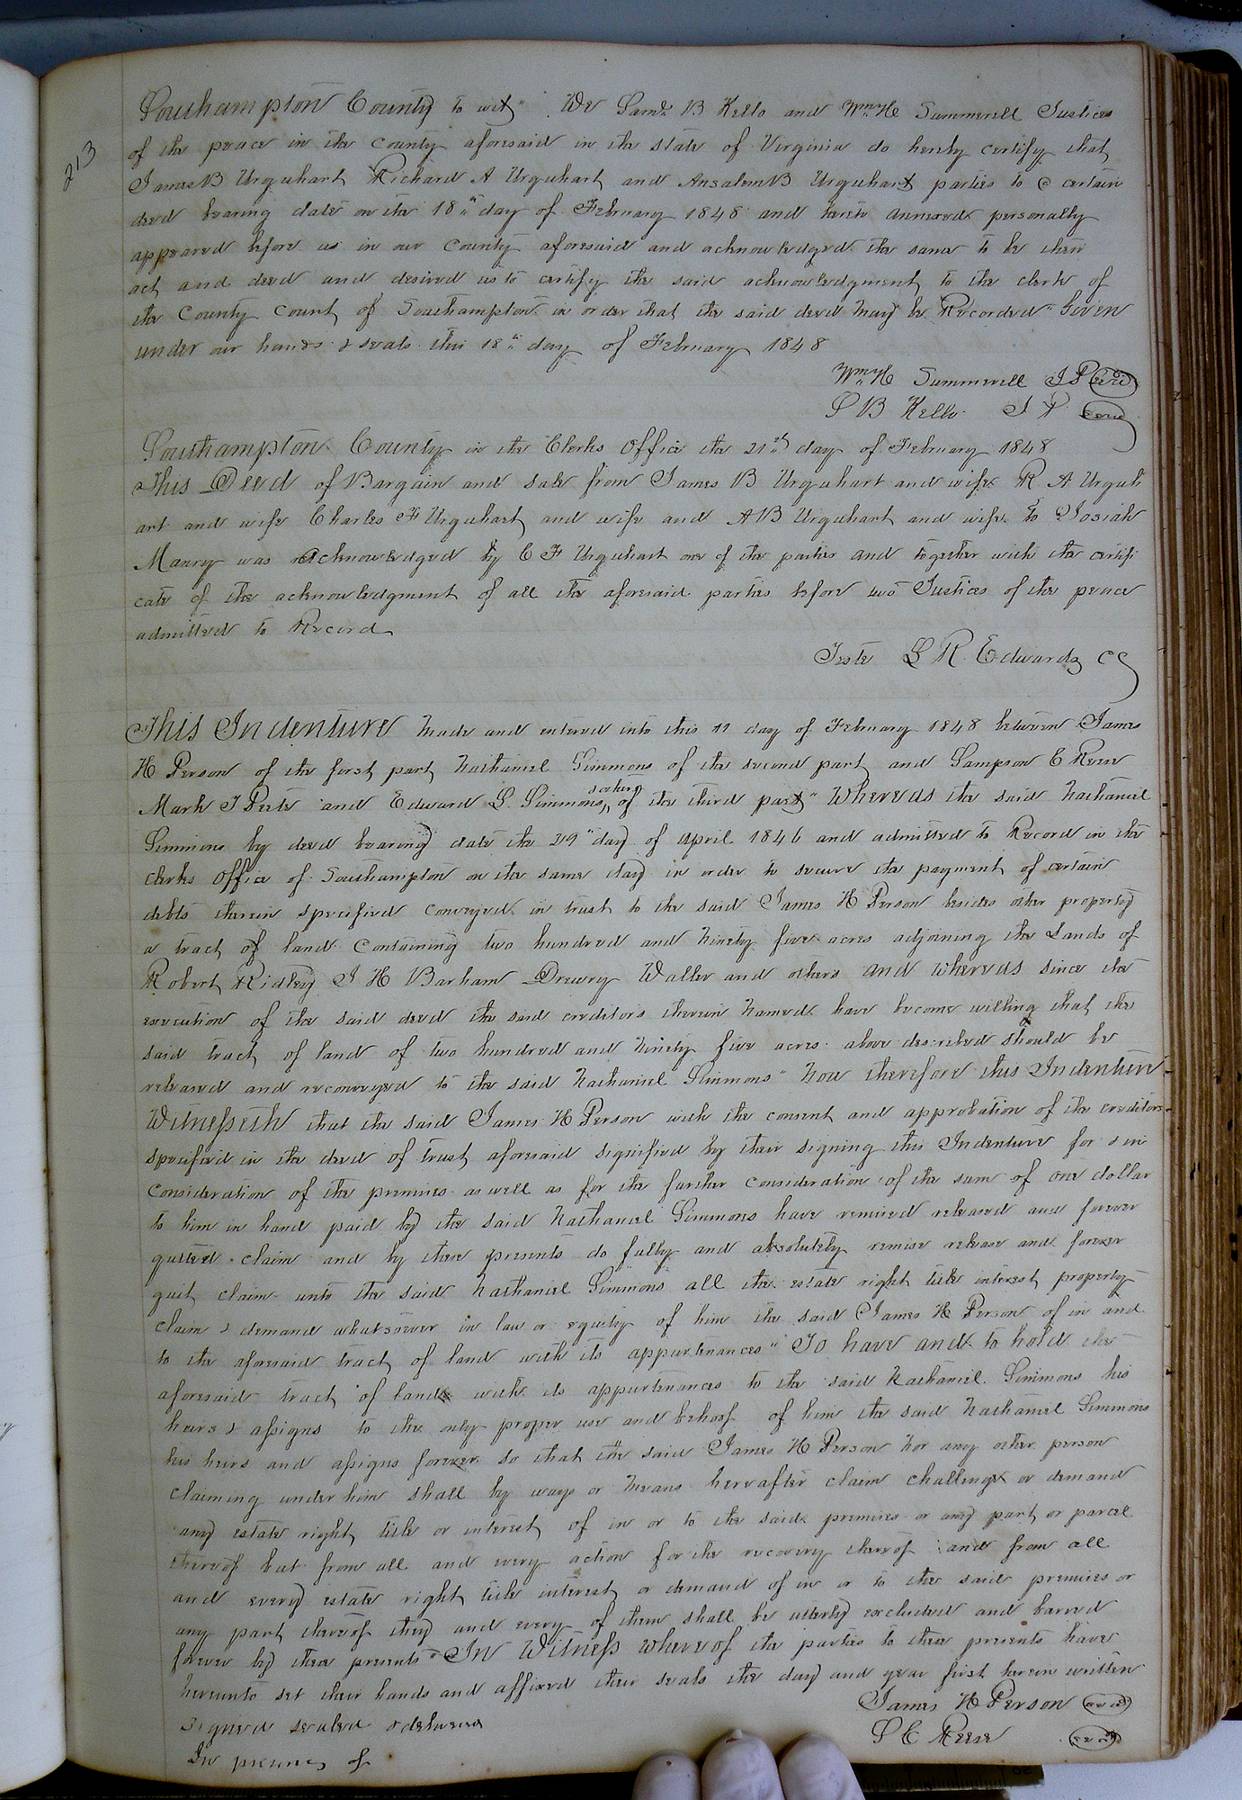 213
Southampton County to wit" We Saml. B Kello and Wm H Summerell Justices
of the peace in the County aforesaid in the state of Virginia do hereby certify that
James B Urquhart Richard A Urquhart and Ansalem B Urquhart parties to a certain
deed bearing date on the 18th day of February 1848 and hereto annexed personally
appeared before us in our County aforesaid and acknowledged the same to be their
act and deed and desired us to certify the said acknowledgment to the clerk of
the County Court of Southampton in order that the said deed may be Recorded" Given
under our hands & seals this 18th day of February 1848
Wm H Summerell J P Seal
S B Kello J P Seal
Southampton County in the Clerks Office the 21st day of February 1848
This Deed of Bargain and sale from James B Urquhart and wife R A Urquh
art and wife Charles F Urquhart and wife and A B Urquhart and wife to Josiah
Maury was acknowledged by C F Urquhart one of the parties and together with the certifi
cate of the acknowledgment of all the aforesaid parties before two Justices of the peace
admitted to Record
Teste L R Edwards CC
This Indenture made and entered into this 11 day of February 1848 between James
H Person of the first part Nathaniel Simmons of the second part and Sampson C Reese
Mark J Pete and Edward L. Simmons, of the third part" Whereas the said Nathaniel
Simmons by deed bearing date the 29th day of April 1846 and admitted to Record in the
clerks office of Southampton on the same day in order to secure the payment of certain
debts therein specified conveyed in trust to the said James H Person besides other property
a tract of land containing two hundred and ninety five acres adjoining the Lands of
Robert Ridley J H Barham Drewry Waller and others and whereas since the
execution of the said deed the said creditors therein named have become willing that the
said tract of land of two hundred and ninety five acres above described should be
released and reconveyed to the said Nathaniel Simmons" Now therefore this Indenture
Witnesseth that the said James H Person with the consent and approbation of the creditors
specified in the deed of trust aforesaid signified by their signing this Indenture for & in
consideration of the premises as well as for the further consideration of the sum of one dollar
to him in hand paid by the said Nathaniel Simmons have remised released and forever
quited claim and by these presents do fully and absolutely remise release and forever
quit claim unto the said Nathaniel Simmons all the estate right title interest property
claim & demand whatsoever in law or equity of him the said James H Person of in and
to the aforesaid tract of land with its appurtenances" To have and to hold the
aforesaid tract of land with its appurtenances to the said Nathaniel Simmons his
heirs & assigns to the only proper use and behoof of him the said Nathaniel Simmons
his heirs and assigns forever so that the said James H Person nor any other person
claiming under him shall by ways or means hereafter claim challenge or demand
any estate right title or interest of in or to the said premises or any part or parcel
thereof but from all and every action for the recovery thereof and from all
and every estate right title interest or demand of in or to the said premises or
any part thereof they and every of them shall be utterly excluded and barred
forever by these presents" In Witness whereof the parties to these presents have
hereunto set their hands and affixed their seals the day and year first herein written
signed sealed & delivered James H Person Seal
In presence of S C Reese Seal